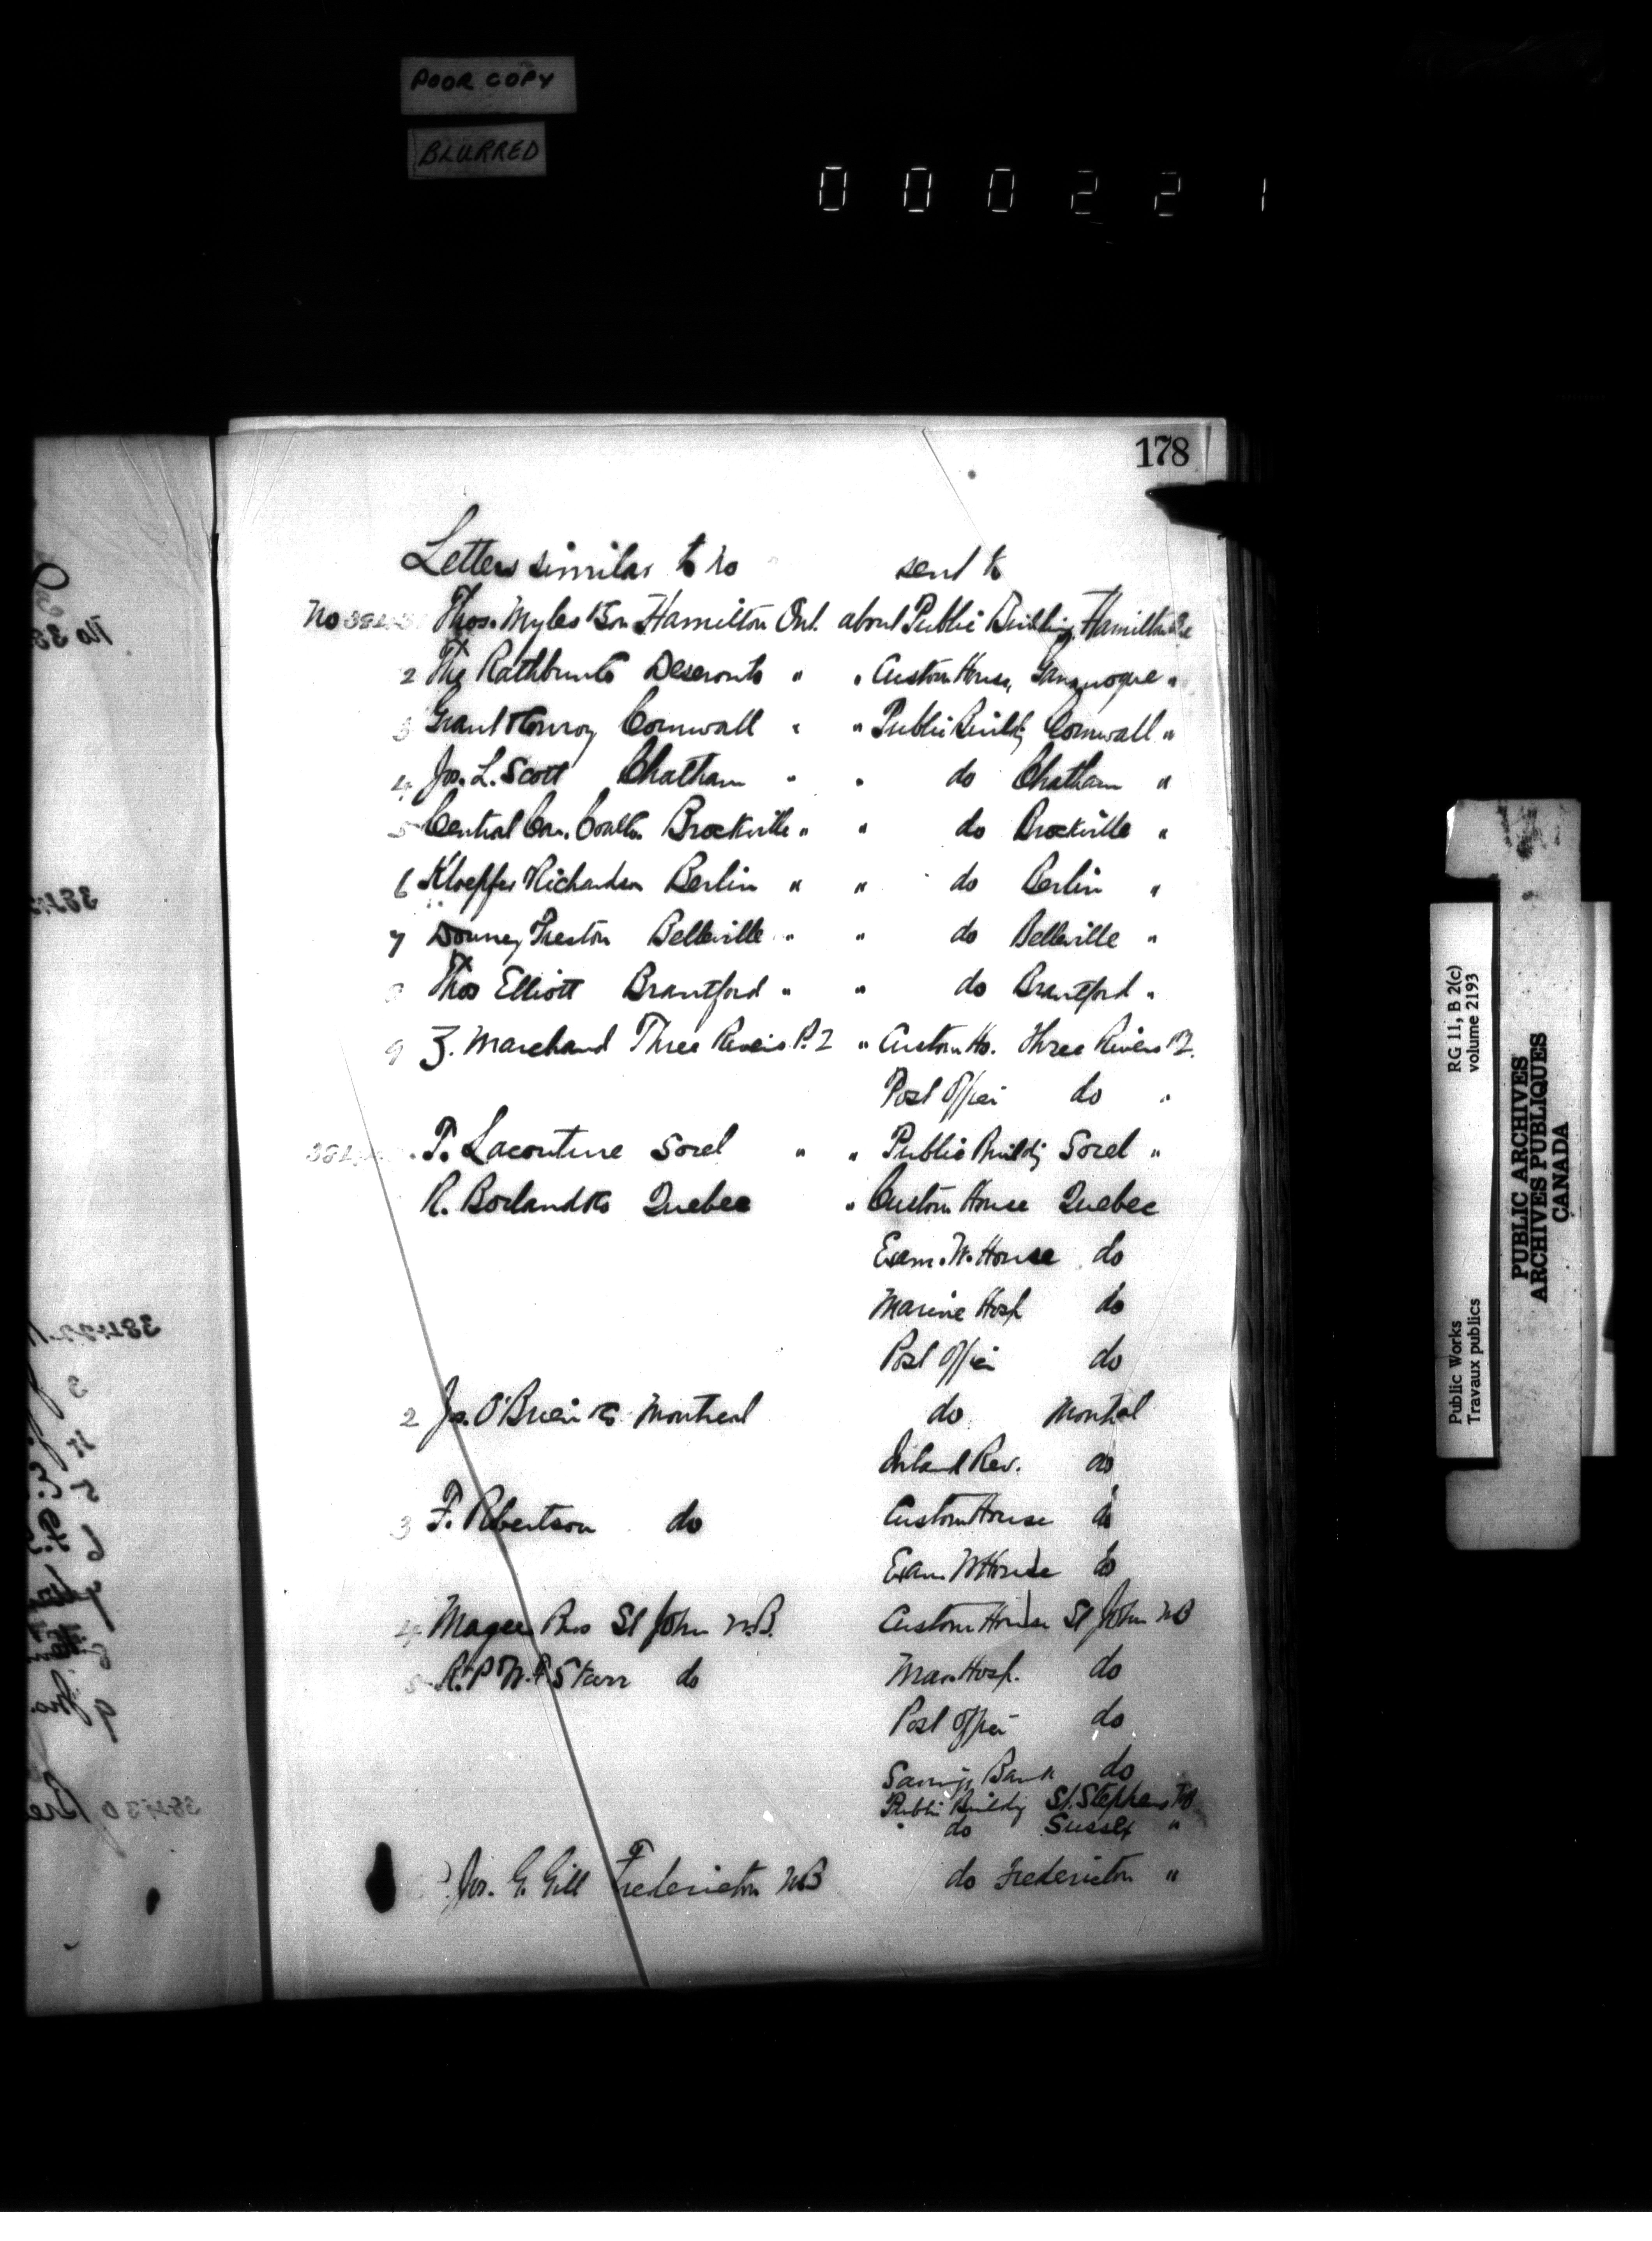 POOR COPY
BLURRED
000221
178
Letters similar to No sent to
No Thos. Myles Son Hamilton Ont. about Public Building, Hamilton
2 The Rathbun Co Deseronto " " Custom House, Gananoque "
3 Grant Conroy Cornwall " " Public Buildg Cornwall "
4 Jos. L. Scott Chatham " " do Chatham "
5 Central Can. Coal Co. Brockville " " do Brockville "
6 Kloepfer Richardson Berlin " " do Berlin "
7 Downey Preston Belleville " " do Belleville "
8 Thos Elliott Brantford " " do Brantford "
9 Z. Marchand Three Rivers P.Q " Custom Ho. Three Rivers P.Q.
Post Office do "
P. Lacouture Sorel " " Public Buildg Sorel "
R. Borland Co Quebec " Custom House Quebec
Exam. W. House do
Marine Hosp do
Post Office do
2 Jas. O'Brien Co Montreal do Montreal
Inland Rev. do
3 F. Robertson do Custom House do
Exam W House do
4 Magee Bros St John N.B. Custom House St John NB
5 R. P & W. F. Starr do Mar. Hosp. do
Post Office do
Savings Bank do
Public Buildg St. Stephens NB
" do Sussex "
Jos. G. Gill Fredericton NB do Fredericton "
RG 11, B 2(c)
volume 2193
Public Works
Travaux publics
PUBLIC ARCHIVES
ARCHIVES PUBLIQUES
CANADA